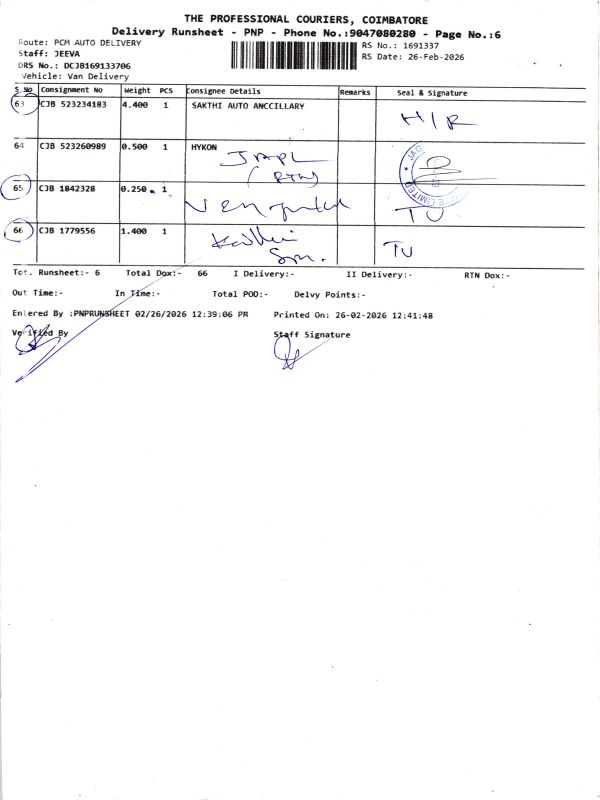 THE PROFESSIONAL COURIERS, COIMBATORE
Delivery Runsheet - PNP - Phone No.:9047080280 - Page No.:6
Route: PCM AUTO DELIVERY
RS No.: 1691337
Staff: JEEVA
RS Date: 26-Feb-2026
DRS No.: DCJB169133706
Vehicle: Van Delivery
S No Consignment No Weight PCS Consignee Details Remarks Seal & Signature
63 CJB 523234183 4.400 1 SAKTHI AUTO ANCCILLARY
H/R
64 CJB 523260989 0.500 1 HYKON
JAPL
(RTN)
65 CJB 1842328 0.250 1
TU
66 CJB 1779556 1.400 1
Sm.
TU
Tot. Runsheet:- 6 Total Dox:- 66 I Delivery:- II Delivery:- RTN Dox:-
Out Time:- In Time:- Total POD:- Delvy Points:-
Entered By :PNPRUNSHEET 02/26/2026 12:39:06 PM Printed On: 26-02-2026 12:41:48
Verified By Staff Signature